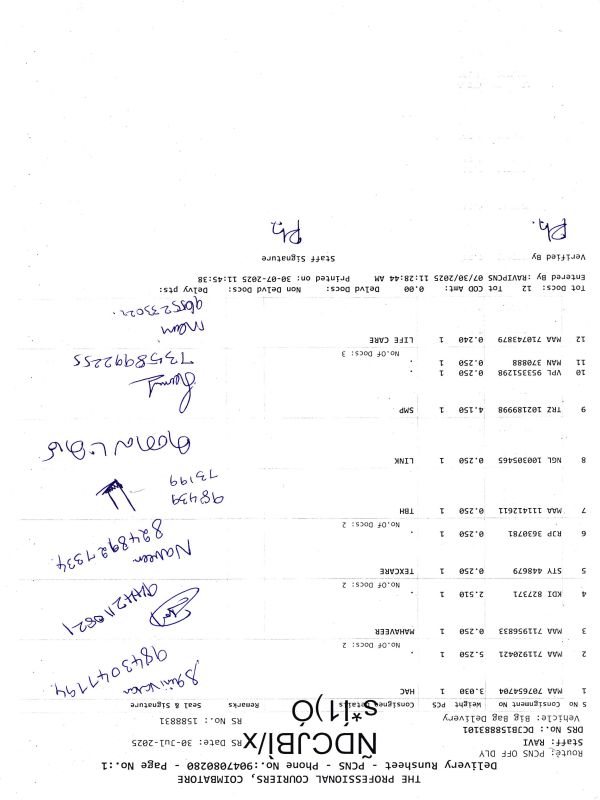 THE PROFESSIONAL COURIERS, COIMBATORE
Delivery Runsheet - PCNS - Phone No.:9047080280 - Page No.:1
Route: PCNS OFF DLY
Staff: RAVI RS Date: 30-Jul-2025
DRS No: DCB158883101
Vehicle: Big: Bag Delivery RS No.: 1588831
ÑDCJBÌ/x
s*í1)Ó
S No Consignment No Weight PCS Consignee Details Remarks Signature & Seal
1 MAA 707654764 3.030 1 HAC
2 MAA 711920421 5.250 1 .
No.OF Docs: 2
3 MAA 711956833 0.250 1 MAHAVEER
4 KDI 827371 2.510 1 .
No.OF Docs: 2
5 STY 448679 0.250 1 TEXCARE
6 RJP 3630781 0.250 1 .
No.OF Docs: 2
Naveen
8248927334
7 MAA 111412611 0.250 1 TBH
98439
73199
8 NGL 100305465 0.250 1 LINK
9 TRZ 102189998 4.150 1 SMP
10 VPL 953351298 0.250 1 .
11 MAN 370888 0.250 1 .
No.OF Docs: 3
7358992255
12 MAA 710743879 0.240 1 LIFE CARE
Mani
Tot Docs: 12 Tot COD Amt: 0.00 Delvd Docs: Non Delvd Docs: Delvy pts:
Entered By :RAVIPCNS 07/30/2025 11:28:44 AM Printed on: 30-07-2025 11:45:38
Verified By Staff Signature